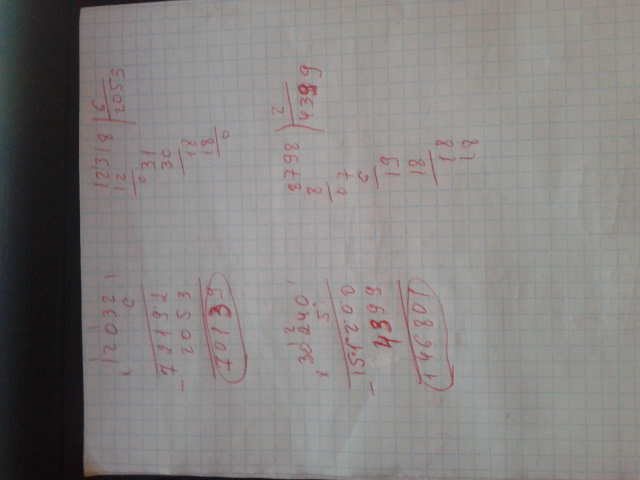 12032
× 6
72192
- 2053
70139
12318 | 6
12
2053
0
31
30
18
18
0
30240
× 5
151200
- 4399
146801
8798 | 2
8
4399
07
6
19
18
18
18